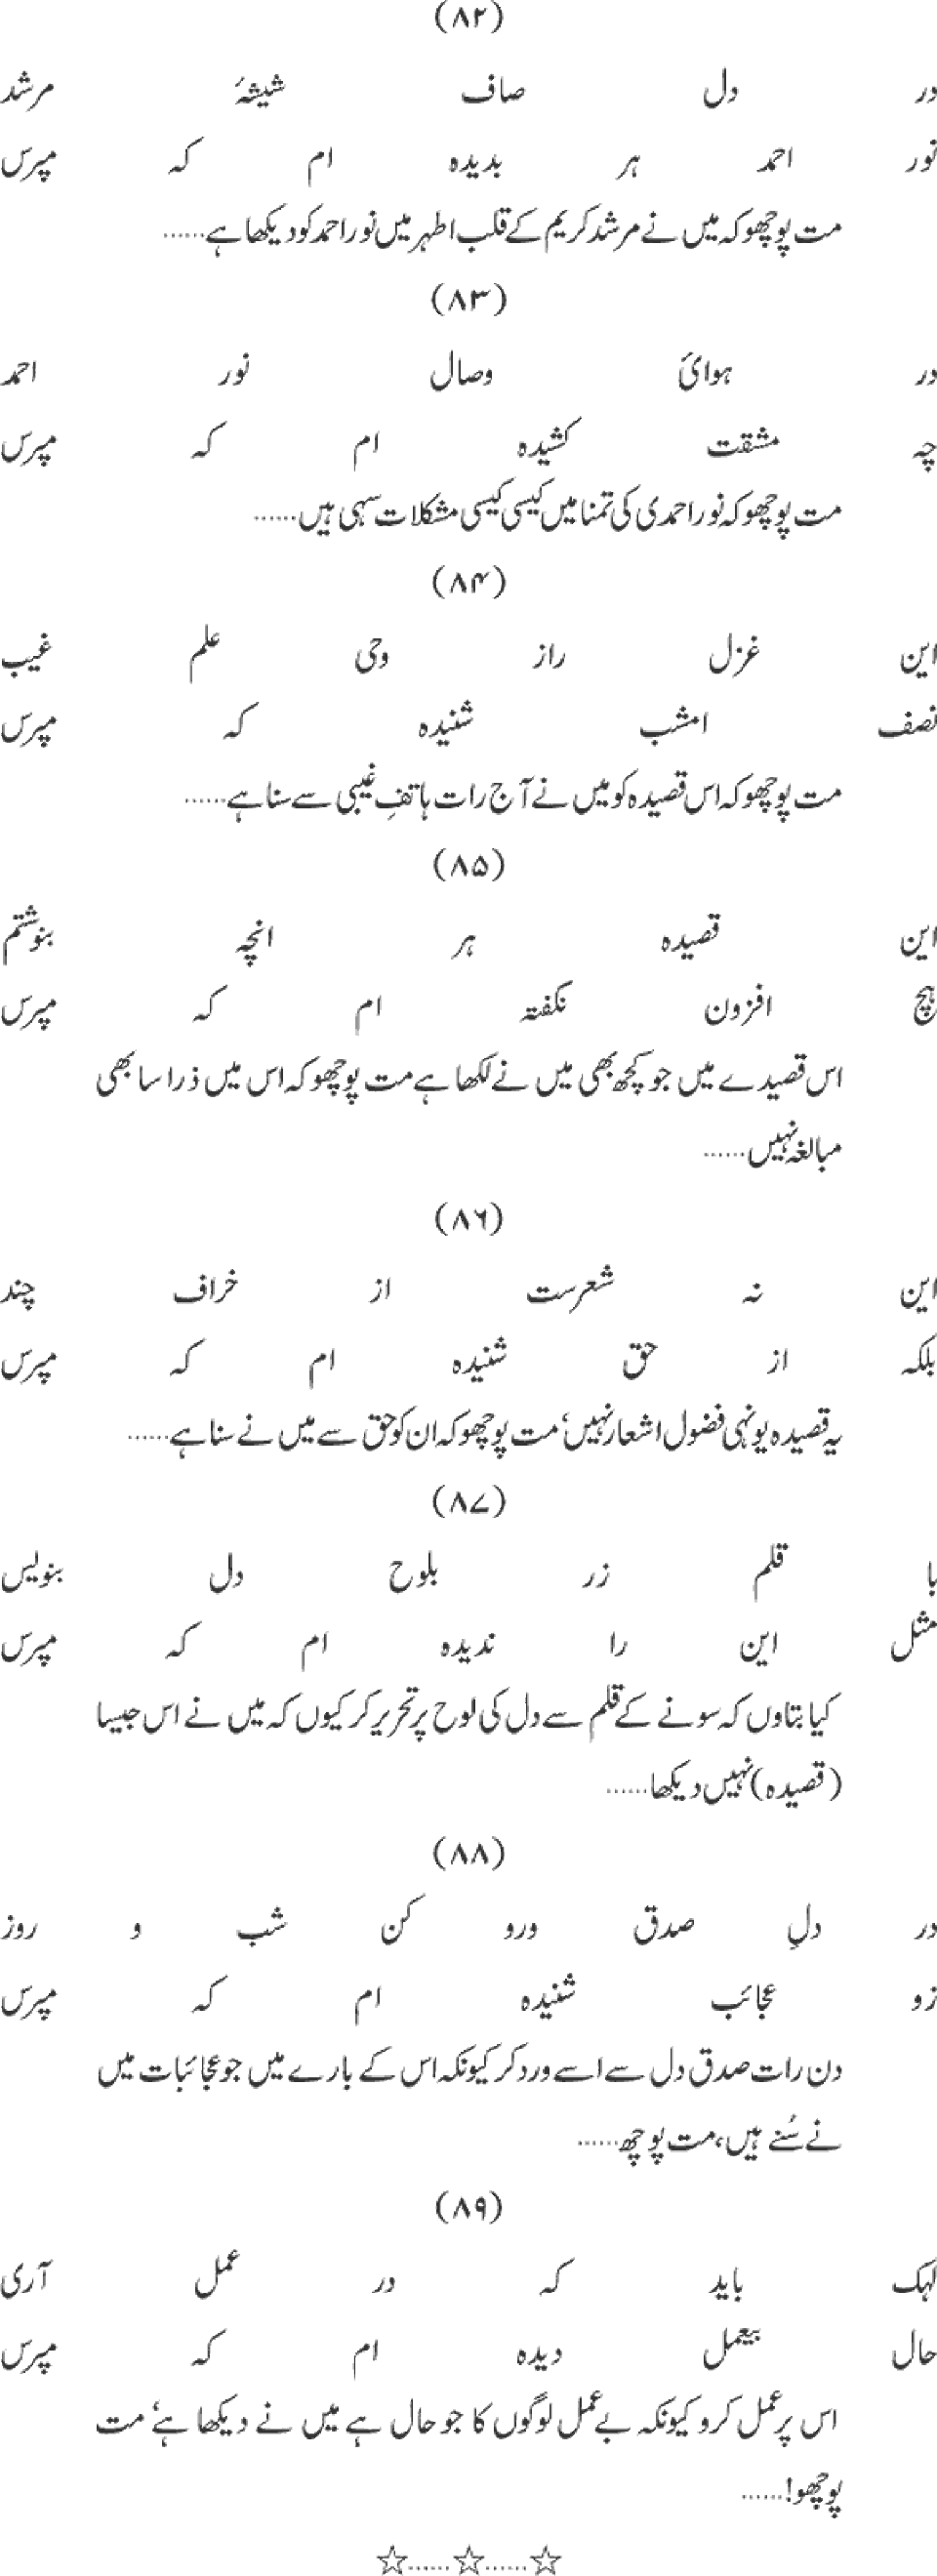 (۸۲)
در دل صاف شیشۂ مرشد
نور احمد ہر بدیدہ ام کہ مپرس
مت پوچھو کہ میں نے مرشد کریم کے قلب اطہر میں نور احمد کو دیکھا ہے......
(۸۳)
در ہوائ وصال نور احمد
چہ مشقت کشیدہ ام کہ مپرس
مت پوچھو کہ نور احمدی کی تمنا میں کیسی کیسی مشکلات سہی ہیں......
(۸۴)
این غزل راز وحی علم غیب
نصف امشب شنیدہ کہ مپرس
مت پوچھو کہ اس قصیدہ کو میں نے آج رات ہاتفِ غیبی سے سنا ہے......
(۸۵)
این قصیدہ ہر انچہ بنوشتم
ہیچ افزون نکفتہ ام کہ مپرس
اس قصیدے میں جو کچھ بھی میں نے لکھا ہے مت پوچھو کہ اس میں ذرا سا بھی
مبالغہ نہیں......
(۸۶)
این نہ شعرست از خراف چند
بلکہ از حق شنیدہ ام کہ مپرس
یہ قصیدہ یونہی فضول اشعار نہیں‘ مت پوچھو کہ ان کو حق سے میں نے سنا ہے......
(۸۷)
با قلم زر بلوح دل بنویس
مثل این را ندیدہ ام کہ مپرس
کیا بتاوں کہ سونے کے قلم سے دل کی لوح پر تحریر کر کیوں کہ میں نے اس جیسا
(قصیدہ) نہیں دیکھا......
(۸۸)
در دلِ صدق ورو کن شب و روز
زو عجائب شنیدہ ام کہ مپرس
دن رات صدق دل سے اسے ورد کر کیونکہ اس کے بارے میں جو عجائبات میں
نے سُنے ہیں، مت پوچھ......
(۸۹)
لہک باید کہ در عمل آری
حال بیعمل دیدہ ام کہ مپرس
اس پر عمل کرو کیونکہ بے عمل لوگوں کا جو حال ہے میں نے دیکھا ہے‘ مت
پوچھو!......
☆......☆......☆